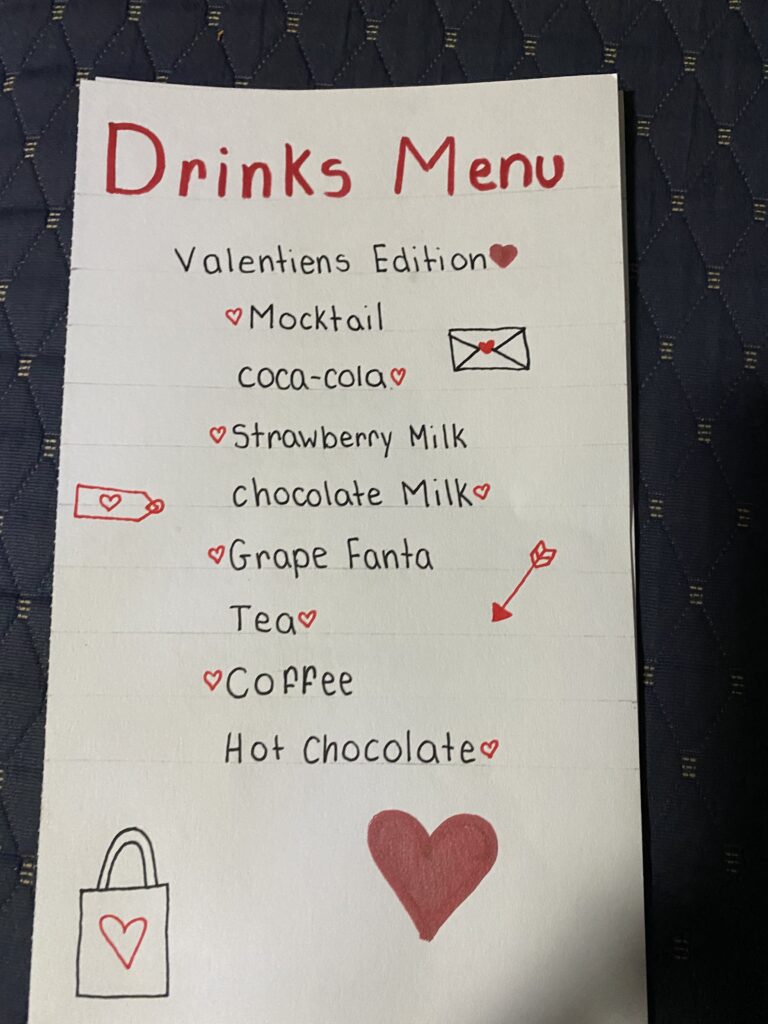 Drinks Menu
Valentiens Edition
Mocktail
coca-cola
Strawberry Milk
chocolate Milk
Grape Fanta
Tea
Coffee
Hot Chocolate